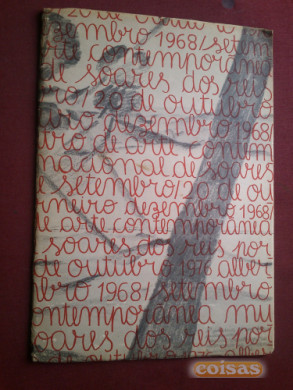 20 de
dezembro 1968/setem
bro contemporânea
de soares dos rei
ro/20 de outubro
aro dezembro 1968/
bro de arte contem
nacional de soares
e setembro/20 de ou
neiro dezembro 1968/
de arte contemporânea
l soares dos reis por
de outubro 1976 alber
bro 1968/setembro
ontemporânea mu
oares dos reis por
de outubro 1976 alber
coisas